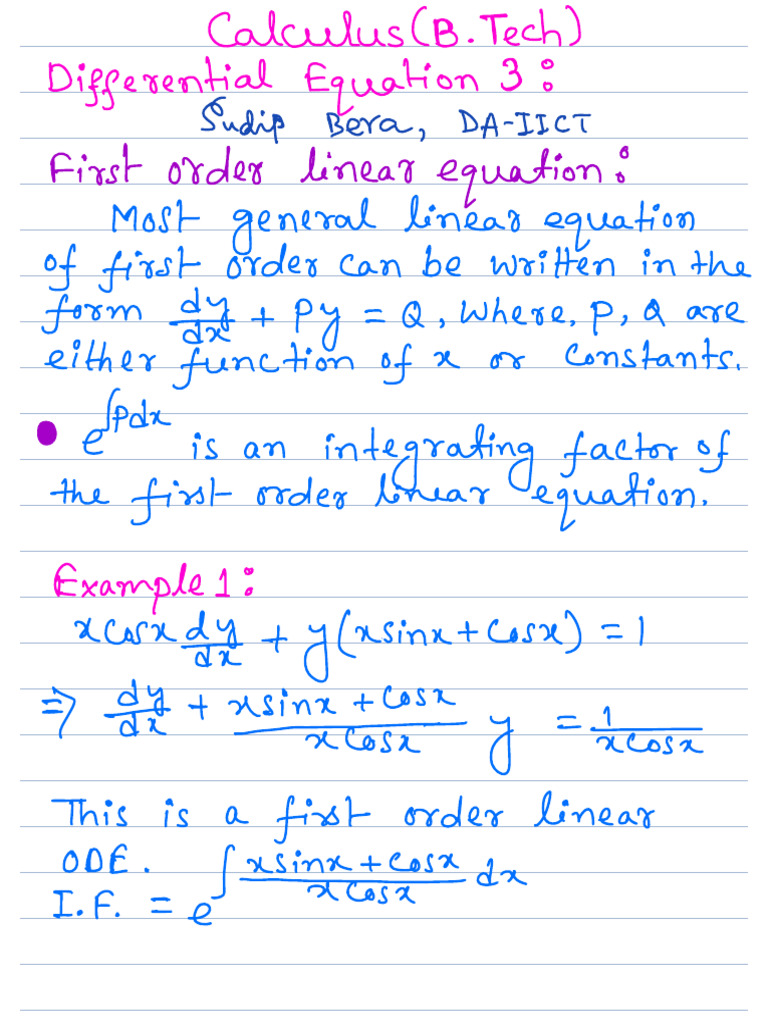 Calculus (B.Tech)
Differential Equation 3:
Sudip Bera, DA-IICT
First order linear equation:
Most general linear equation
of first order can be written in the
form dy/dx + Py = Q, where, P, Q are
either function of x or constants.
• e^∫Pdx is an integrating factor of
the first order linear equation.
Example 1:
x cosx dy/dx + y(x sinx + cosx) = 1
⇒ dy/dx + (x sinx + cosx)/(x cosx) y = 1/(x cosx)
This is a first order linear
ODE.
I.F. = e^∫(x sinx + cosx)/(x cosx) dx